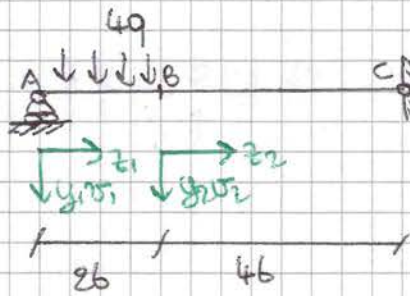 4q
A B C
z₁ z₂
y₁v₁ y₂v₂
2b 4b